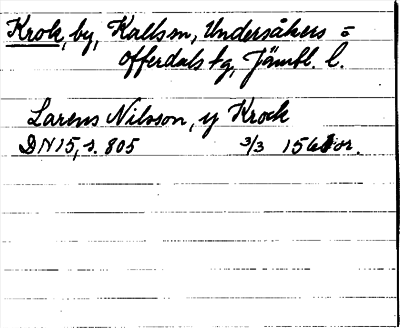 Krok, by, Kalls sn, Undersåkers o
Offerdals tg, Jämtl. l.
Larens Nilsson, y Krock
DN 15, s. 805 3/3 1568 or.